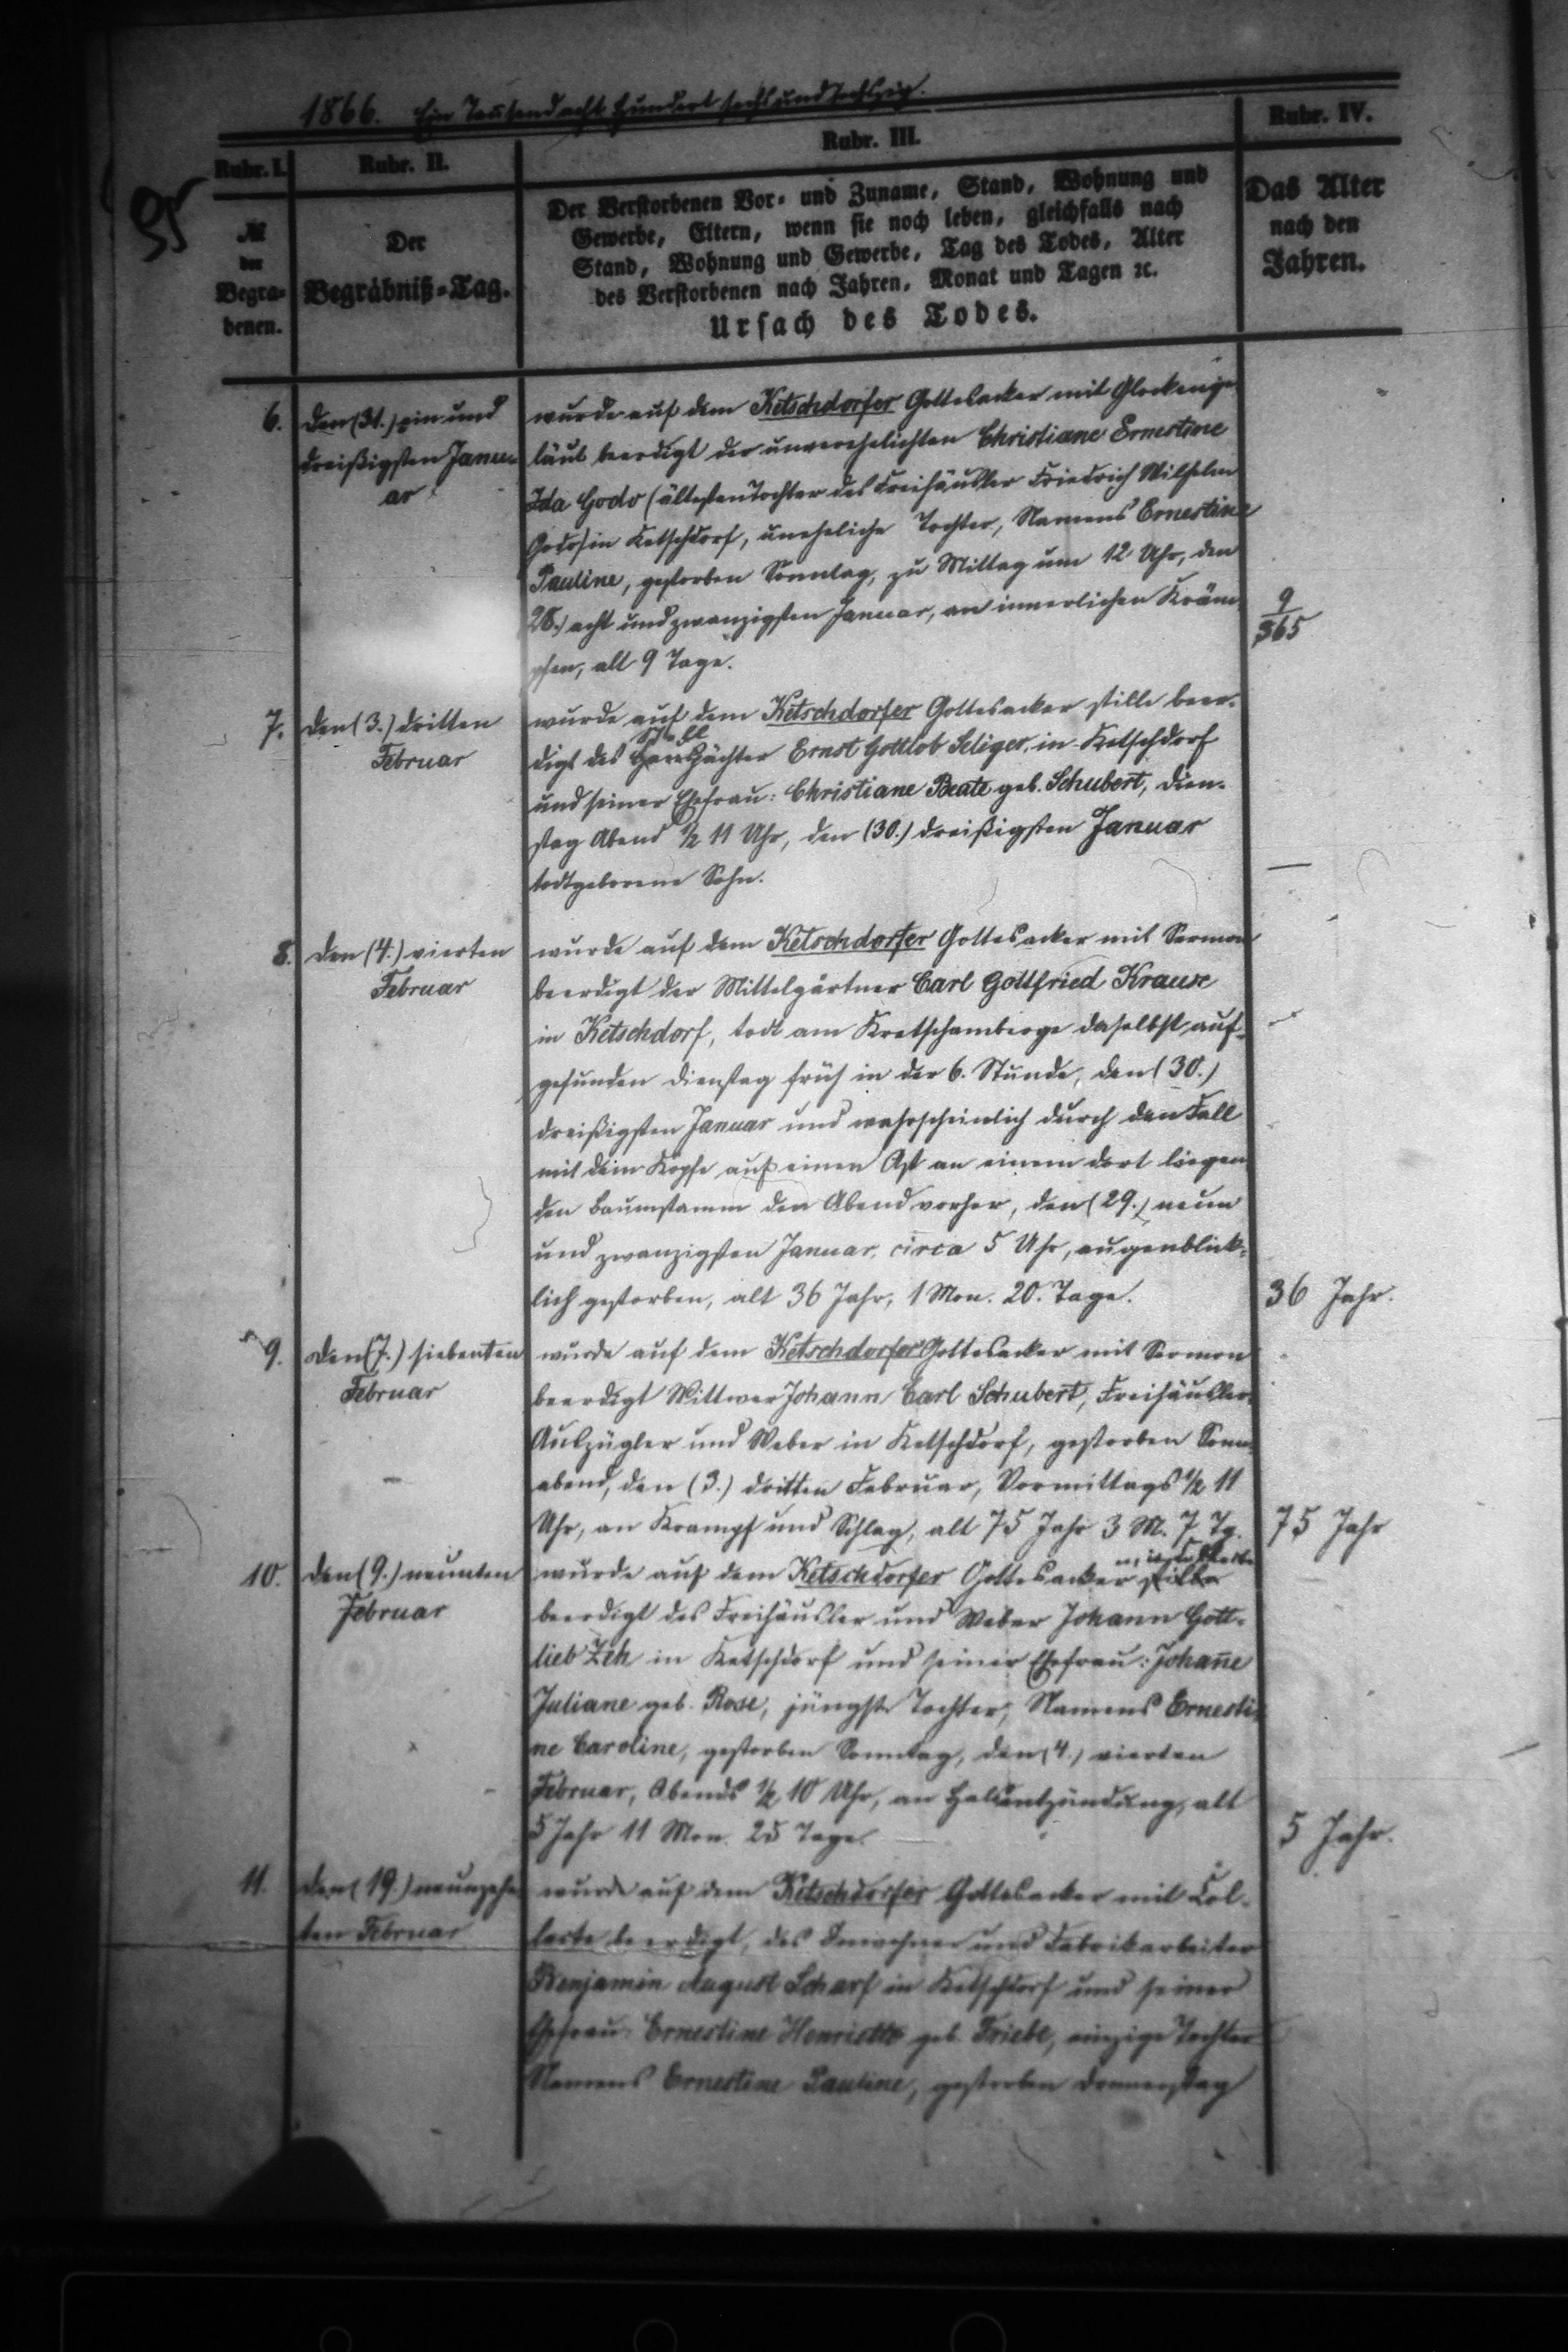 1866. Ein Tausend acht hundert sechs und sechszig.
95
Rubr. I.
Rubr. II.
Rubr. III.
Rubr. IV.
№
der
Begra-
benen.
Der
Begräbniß-Tag.
Der Verstorbenen Vor- und Zuname, Stand, Wohnung und
Gewerbe, Eltern, wenn sie noch leben, gleichfalls nach
Stand, Wohnung und Gewerbe, Tag des Todes, Alter
des Verstorbenen nach Jahren, Monat und Tagen ꝛc.
Ursach des Todes.
Das Alter
nach den
Jahren.
6.
den (31.) ein und
dreißigsten Janu-
ar
wurde auf dem Ketschdorfer Gottesacker mit Glockenge-
läut beerdigt der unverehelichten Christiane Ernestine
Ida Godo (ältesten Tochter des Freihäusler Friedrich Wilhelm
Godo) in Ketschdorf, uneheliche Tochter, Namens Ernestine
Pauline, gestorben Sonntag, zu Mittag um 12 Uhr, den
28.) acht und zwanzigsten Januar, an innerlichen Kräm-
pfen, alt 9 Tage.
9
365
7.
den (3.) dritten
Februar
wurde auf dem Ketschdorfer Gottesacker stille beer-
digt des Pächter Ernst Gottlob Seliger, in Ketschdorf
und seiner Ehefrau: Christiane Beate geb. Schubert, Dien-
stag Abend ½ 11 Uhr, den (30.) dreißigsten Januar
todtgeborene Sohn.
—
8.
den (4.) vierten
Februar
wurde auf dem Ketschdorfer Gottesacker mit Sermon
beerdigt der Mittelgärtner Carl Gottfried Krause
in Ketschdorf, todt am Kretschamberge daselbst auf-
gefunden Dienstag früh in der 6. Stunde, den (30.)
dreißigsten Januar und wahrscheinlich durch den Fall
mit dem Kopfe auf einen Ast an einem dort liegen-
den Baumstamm den Abend vorher, den (29.) neun
und zwanzigsten Januar, circa 5 Uhr, augenblick-
lich gestorben, alt 36 Jahr, 1 Mon. 20. Tage.
36 Jahr.
9.
den (7.) siebenten
Februar
wurde auf dem Ketschdorfer Gottesacker mit Sermon
beerdigt Wittwer Johann Carl Schubert, Freihäusler-
Auszügler und Weber in Ketschdorf, gestorben Sonn-
abend, den (3.) dritten Februar, Vormittags ½ 11
Uhr, an Krampf und Schlag, alt 75 Jahr 3 M. 7 Tg.
75 Jahr
10.
den (9.) neunten
Februar
wurde auf dem Ketschdorfer Gottesacker stille
beerdigt des Freihäusler und Weber Johann Gott-
lieb Zeh in Ketschdorf und seiner Ehefrau: Johan̄e
Juliane geb. Rose, jüngste Tochter, Namens Ernesti-
ne Caroline, gestorben Sonntag, den (4.) vierten
Februar, Abends ½ 10 Uhr, an Halsentzündung, alt
5 Jahr 11 Mon. 25 Tage.
5 Jahr.
11.
den (19.) neunzehn-
ten Februar
wurde auf dem Ketschdorfer Gottesacker mit Col-
lecte beerdigt, des Inwohner und Fabrikarbeiter
Benjamin August Scharf in Ketschdorf und seiner
Ehefrau: Ernestine Henriette geb. Friebe, einzige Tochter
Namens Ernestine Pauline, gestorben Donnerstag